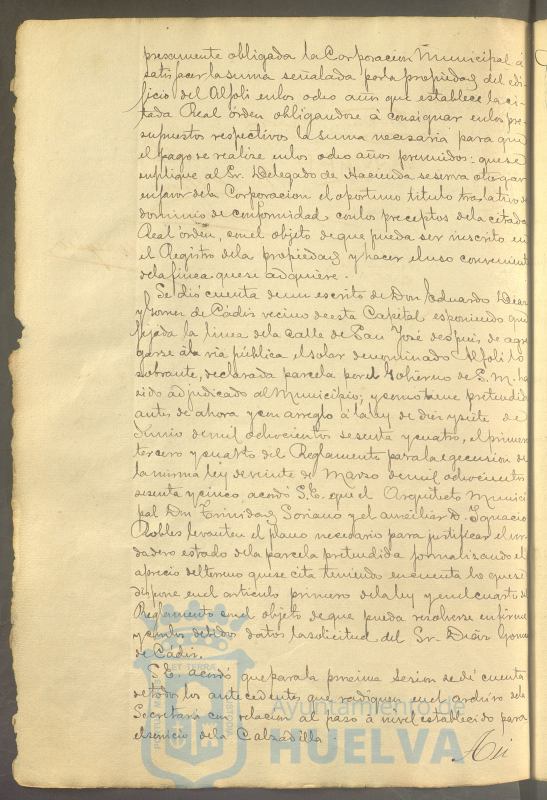 presamente obligada la Corporacion Municipal á
satisfacer la suma señalada por la propiedad del edi-
ficio del Alfoli en los ocho años que establece la ci-
tada Real órden obligandose á consignar en los pre-
supuestos respectivos la suma necesaria para que
el pago se realize en los ocho años prevenidos: que se
suplique al Sr. Delegado de Hacienda se sirva otorgar
en favor de la Corporacion el oportuno titulo traslativo de
dominio de conformidad con los preceptos de la citada
Real órden, con el objeto de que pueda ser inscrito en
el Registro de la propiedad y hacer el uso conveniente
de la finca que se adquiere.
Se dió cuenta de un escrito de Don Eduardo Diaz
y Gomez de Cádiz vecino de esta Capital esponiendo que
fijada la linea de la calle de San José despues de agre-
garse á la via pública el solar denominado Alfoli lo
sobrante, declarada parcela por el Gobierno de S. M. ha
sido adjudicado al Municipio; y como tiene pretendida
antes de ahora y con arreglo á la ley de diez y siete de
Junio de mil ochocientos sesenta y cuatro, el primero
tercero y cuarto del Reglamento para la egecusion de
la misma ley de veinte de Marzo de mil ochocientos
sesenta y cinco, acordó S. E. que el Arquitecto Munici-
pal Don Trinidad Soriano y el auxiliar D. Ignacio
Robles levanten el plano necesario para justificar el ver-
dadero estado de la parcela pretendida formalizando el
aprecio del terreno que se cita teniendo en cuenta lo que se
dispone en el articulo primero de la ley y en el cuarto del
Reglamento con el objeto de que pueda resolverse en firme
y con los debidos datos la solicitud del Sr. Diaz Gomez
de Cádiz.
S. E. acordó que para la procsima sesion se dé cuenta
de todos los antecedentes que radiquen en el archivo de la
Secretaria con relacion al paso á nivel establecido para
el servicio de la Calzadilla.
Asi
PORTUS MARIS ET TERRÆ CUSTODIA
Ayuntamiento de
HUELVA